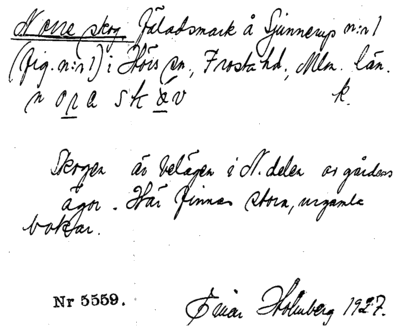 Norre skog. Fäladsmark å Gunnerup n:r 1
(fig. n:r 1) i Hörs sn, Frosta hd, Mlm. län.
n o r a s k ä v k.
Skogen är belägen i N. delen av gårdens
ägor. Här finnas stora, urgamla
bokar.
Nr 5559.
Einar Holmberg 1927.